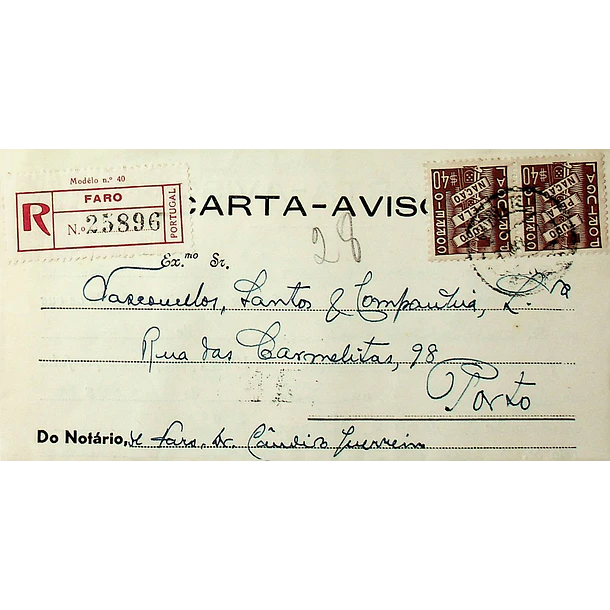 Modêlo n.º 40
R FARO PORTUGAL
N.º 25896
CARTA-AVISO
28
Ex.mo Sr.
Vasconcellos, Santos & Companhia, Lda
Rua das Carmelitas, 98
Porto
Do Notário, de Faro, Dr. Cândido Guerreiro
TUDO PELA NAÇÃO
$40
TUDO PELA NAÇÃO
$40